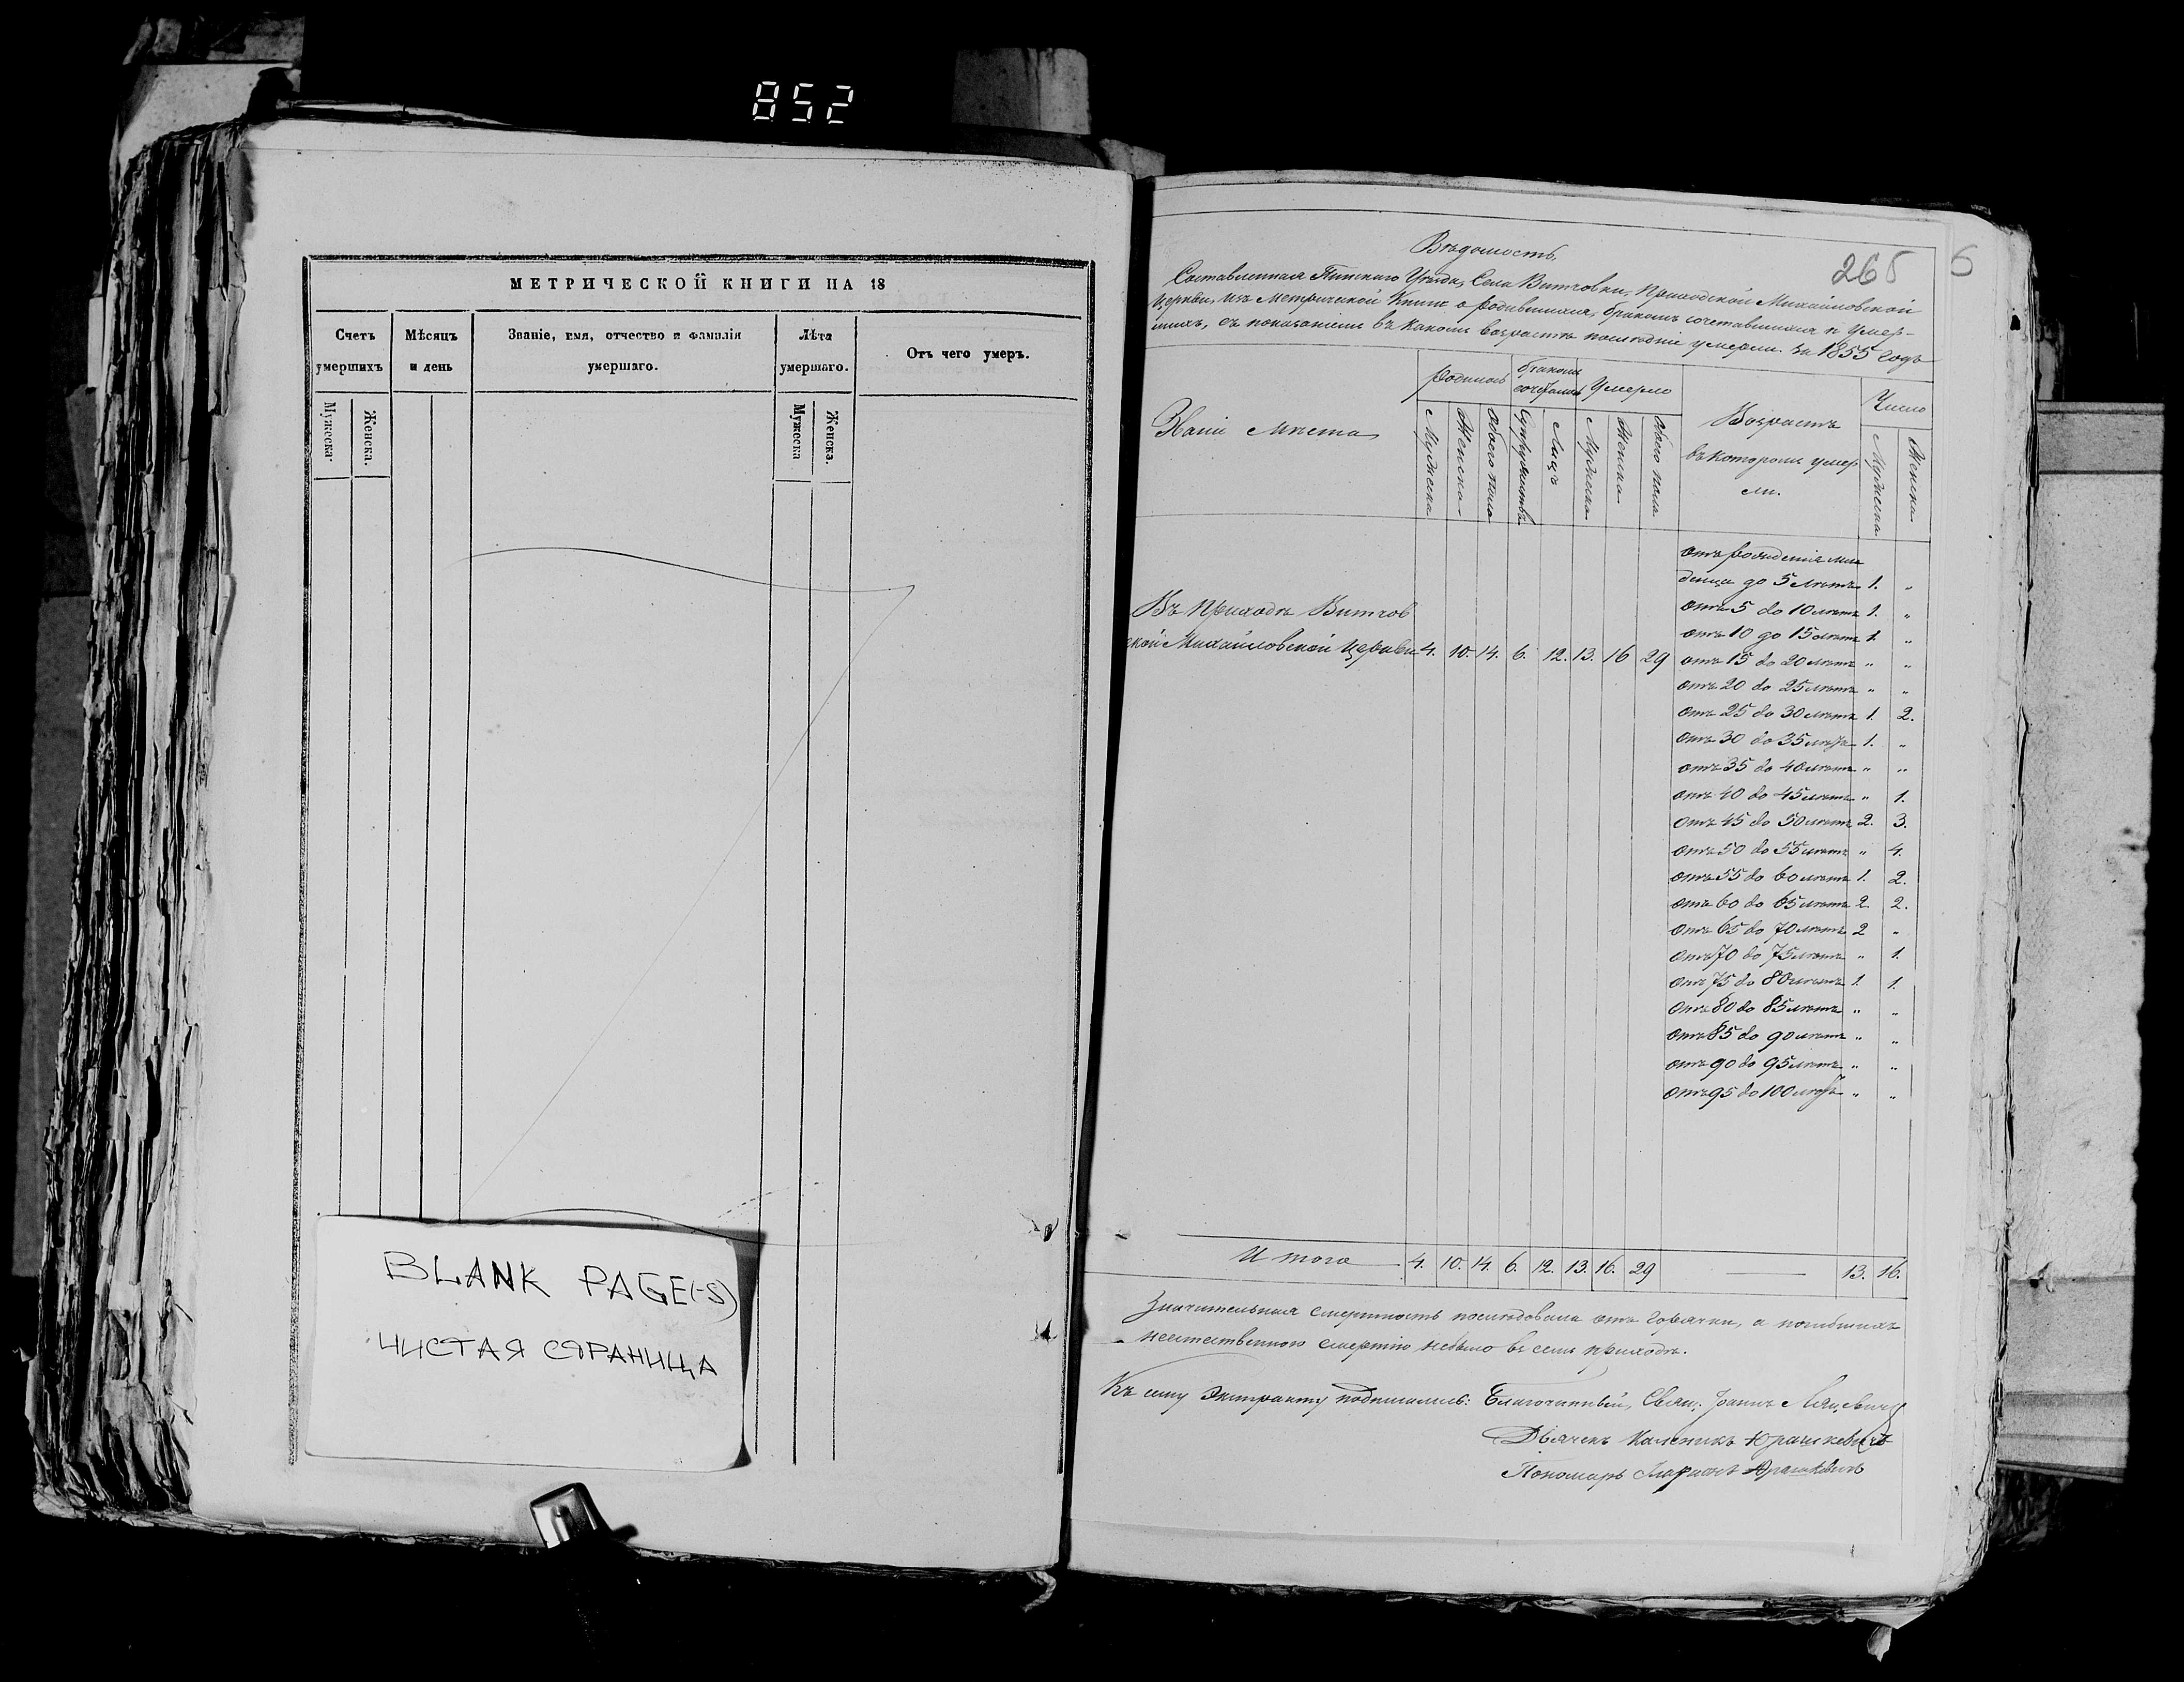 852
МЕТРИЧЕСКОЙ КНИГИ НА 18
Счетъ умершихъ
Мѣсяцъ и день
Званіе, имя, отчество и фамилія умершаго.
Лѣта умершаго.
Отъ чего умеръ.
Мужеска.
Женска.
Мужеска
Женска.
BLANK PAGE(-S)
ЧИСТАЯ СТРАНИЦА
Вѣдомость
Составленная Пинскаго Уѣзда, Села Витчовки, Приходской Михайловской
Церкви, изъ Метрической Книги о родившихся, бракомъ сочетавшихся и Умер-
шихъ, съ показаніемъ въ какомъ возрастѣ послѣдніе умерли за 1855 годъ
Званіе мѣста
Родилось
Бракомъ
Умерло
Возрастъ
въ которомъ умер
ли.
Число
Мужеска
Женска
Обоего пола
Супружествъ
Лицъ
Мужеска
Женска
Обоего пола
Мужеска
Женска
отъ рожденія мла
денца до 5 лѣтъ 1. „
отъ 5 до 10 лѣтъ 1. „
отъ 10 до 15 лѣтъ 1. „
Въ Приходѣ Витчов
ской Михайловской Церкви 4. 10. 14. 6. 12. 13. 16 29
отъ 15 до 20 лѣтъ „ „
отъ 20 до 25 лѣтъ „ „
отъ 25 до 30 лѣтъ 1. 2.
отъ 30 до 35 лѣтъ 1. „
отъ 35 до 40 лѣтъ „ „
отъ 40 до 45 лѣтъ „ 1.
отъ 45 до 50 лѣтъ 2. 3.
отъ 50 до 55 лѣтъ „ 4.
отъ 55 до 60 лѣтъ 1. 2.
отъ 60 до 65 лѣтъ 2. 2.
отъ 65 до 70 лѣтъ 2 „
отъ 70 до 75 лѣтъ „ 1.
отъ 75 до 80 лѣтъ 1. 1.
отъ 80 до 85 лѣтъ „ „
отъ 85 до 90 лѣтъ „ „
отъ 90 до 95 лѣтъ „ „
отъ 95 до 100 лѣтъ „ „
Итого 4. 10. 14. 6. 12. 13. 16. 29 — 13. 16.
Значительная смертность послѣдовала отъ горячки, а погибшихъ
неестественною смертію небыло въ семъ приходѣ.
Къ сему Экстракту подписались: Благочинный, Свящ. Іоаннъ
Дьячекъ Каленикъ Юрашкевичъ
Пономарь Юрашкевичъ